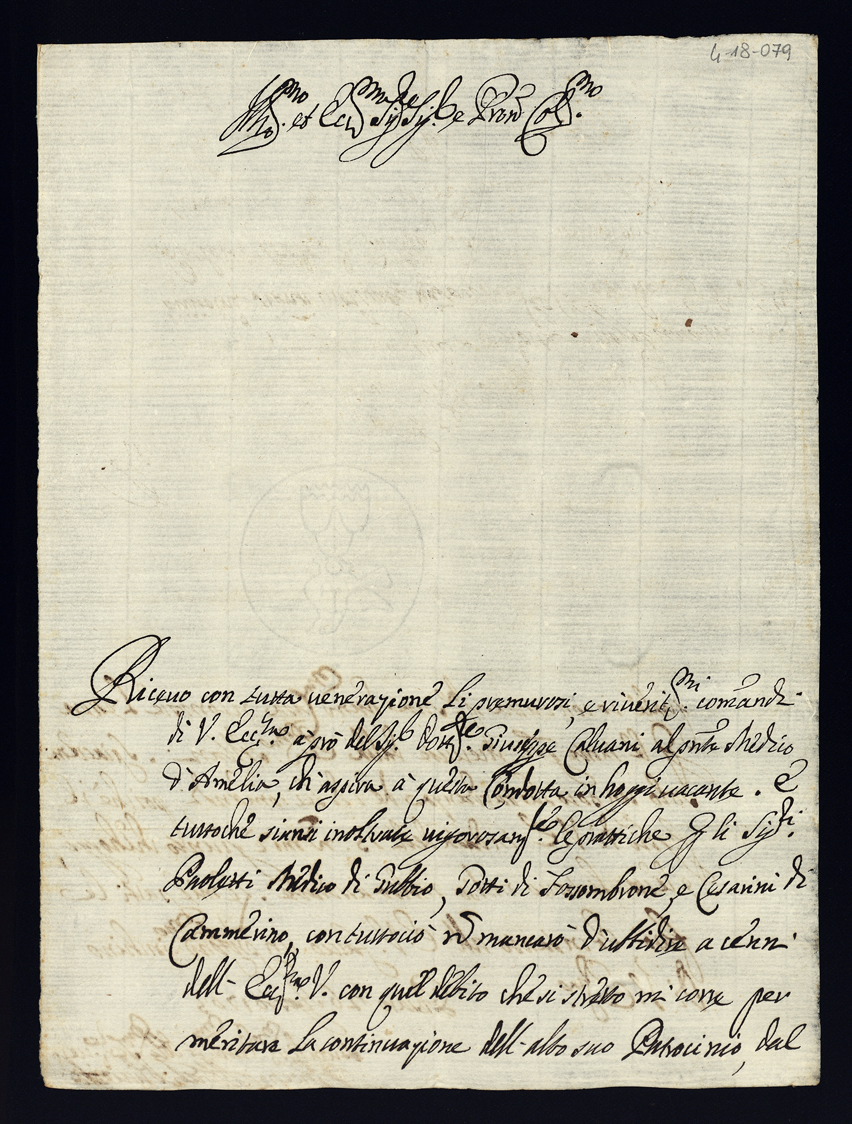 4-18-079
Ill.mo et Ecc.mo Sig.re Sig.r e Pron Col.mo
Riceuo con tutta venerazione li premurosi, e riverit.mi comandi
di V. Ecc.za a prò del Sig.r Dott.re Giuseppe Caluani al pnte Medico
d'Amelia, ch'aspira à questa Condotta in hoggi uacante. E
tuttoche siano inoltrate uigorosam.te le prattiche p gli Sig.ri
Paoletti Medico di Gubbio, Gotti di Fossombrone, e Cesarini di
Cammerino, con tuttociò nō mancarò d'ubbidire a cenni
dell' Ecc.za V. con quel debito che si stretto mi corre per
meritare la continuazione dell' alto suo Patrocinio, dal